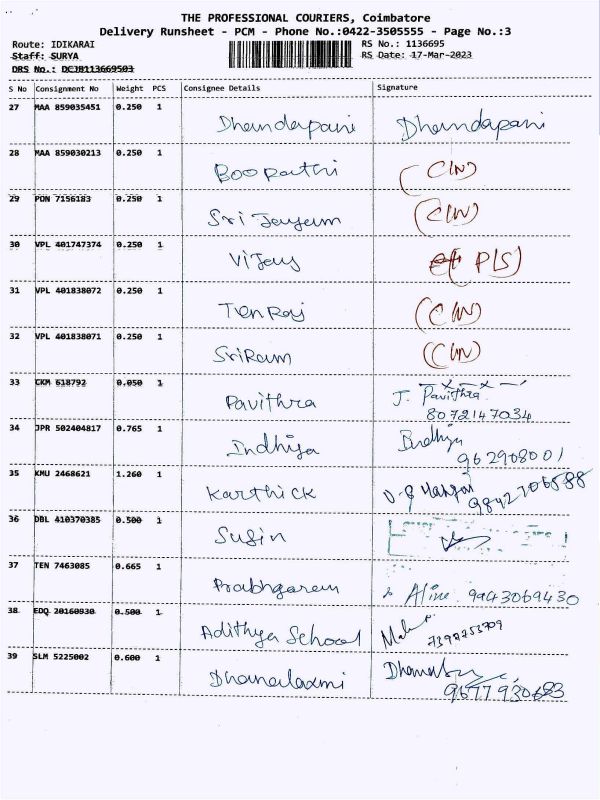 THE PROFESSIONAL COURIERS, Coimbatore
Delivery Runsheet - PCM - Phone No.:0422-3505555 - Page No.:3
Route: IDIKARAI RS No.: 1136695
Staff: SURYA RS Date: 17-Mar-2023
DRS No.: DCJB113669503
S No Consignment No Weight PCS Consignee Details Signature
27 MAA 859035451 0.250 1
Dhandapani Dhandapani
28 MAA 859030213 0.250 1
Boopathi (CIN)
29 PDN 7156183 0.250 1
Sri Jeyam (CIN)
30 VPL 401747374 0.250 1
Vijay P(S)
31 VPL 401838072 0.250 1
Ten Raj (CIN)
32 VPL 401838071 0.250 1
SriRam (CIN)
33 CKM 618792 0.050 1
Pavithra J. Pavithra
8072147034
34 JPR 502404817 0.765 1
Indhiya Indhiya
962908001
35 KMU 2468621 1.260 1
Karthick 9842706588
36 DBL 410370385 0.500 1
Sugin
37 TEN 7463085 0.665 1
Prabhgaran Aline 9943069430
38 EDQ 20160930 0.500 1
Adithya School
39 SLM 5225002 0.600 1
Dhanalaxmi